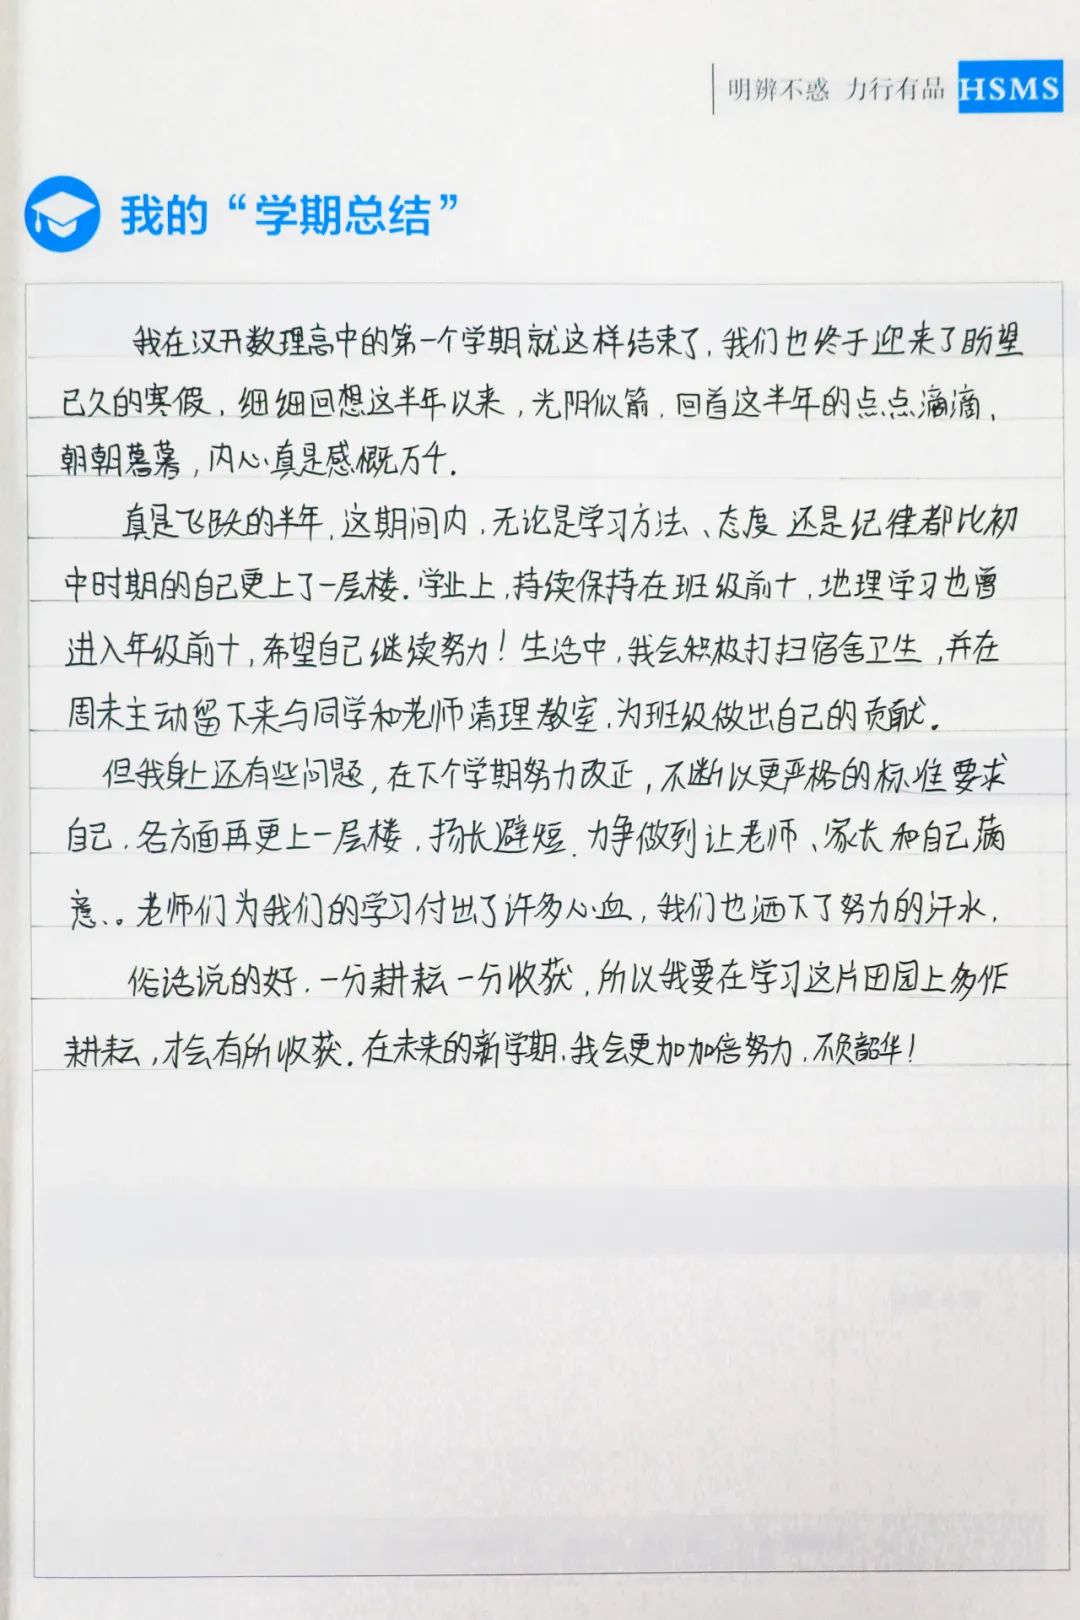 明辨不惑 力行有品 HSMS
我的“学期总结”
我在汉开数理高中的第一个学期就这样结束了,我们也终于迎来了盼望
已久的寒假,细细回想这半年以来,光阴似箭,回首这半年的点点滴滴、
朝朝暮暮,内心真是感慨万千.
真是飞跃的半年,这期间内,无论是学习方法、态度还是纪律都比初
中时期的自己更上了一层楼.学业上,持续保持在班级前十,地理学习也曾
进入年级前十,希望自己继续努力!生活中,我会积极打扫宿舍卫生,并在
周末主动留下来与同学和老师清理教室,为班级做出自己的贡献。
但我身上还有些问题,在下个学期努力改正,不断以更严格的标准要求
自己.各方面再更上一层楼,扬长避短.力争做到让老师、家长和自己满
意.。老师们为我们的学习付出了许多心血,我们也洒下了努力的汗水.
俗话说的好.一分耕耘一分收获,所以我要在学习这片田园上多作
耕耘,才会有所收获.在未来的新学期,我会更加加倍努力,不负韶华!